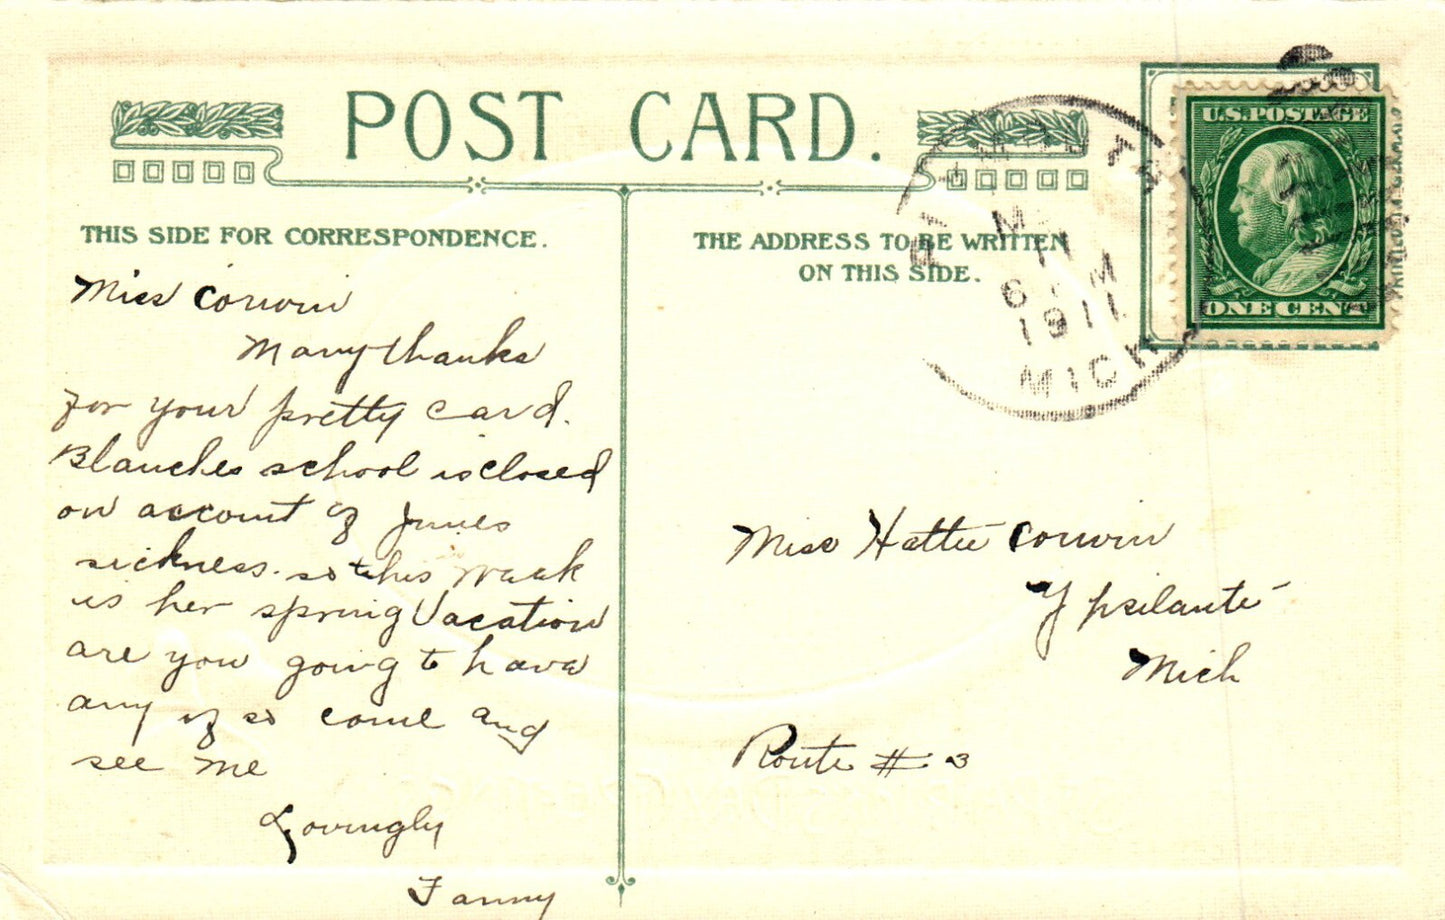 POST CARD.
THIS SIDE FOR CORRESPONDENCE.
Miss Corwin
Many thanks
for your pretty card.
Blanches school is closed
on account of Junes
sickness. so this weak
is her spring Vacation
are you going to have
any if so come and
see me
Lovingly
Fanny
THE ADDRESS TO BE WRITTEN
ON THIS SIDE.
PLYMOUTH
11
6 M
1911
MICH
U.S. POSTAGE
ONE CENT
Miss Hattie Corwin
Ypsilante
Mich
Route # 3